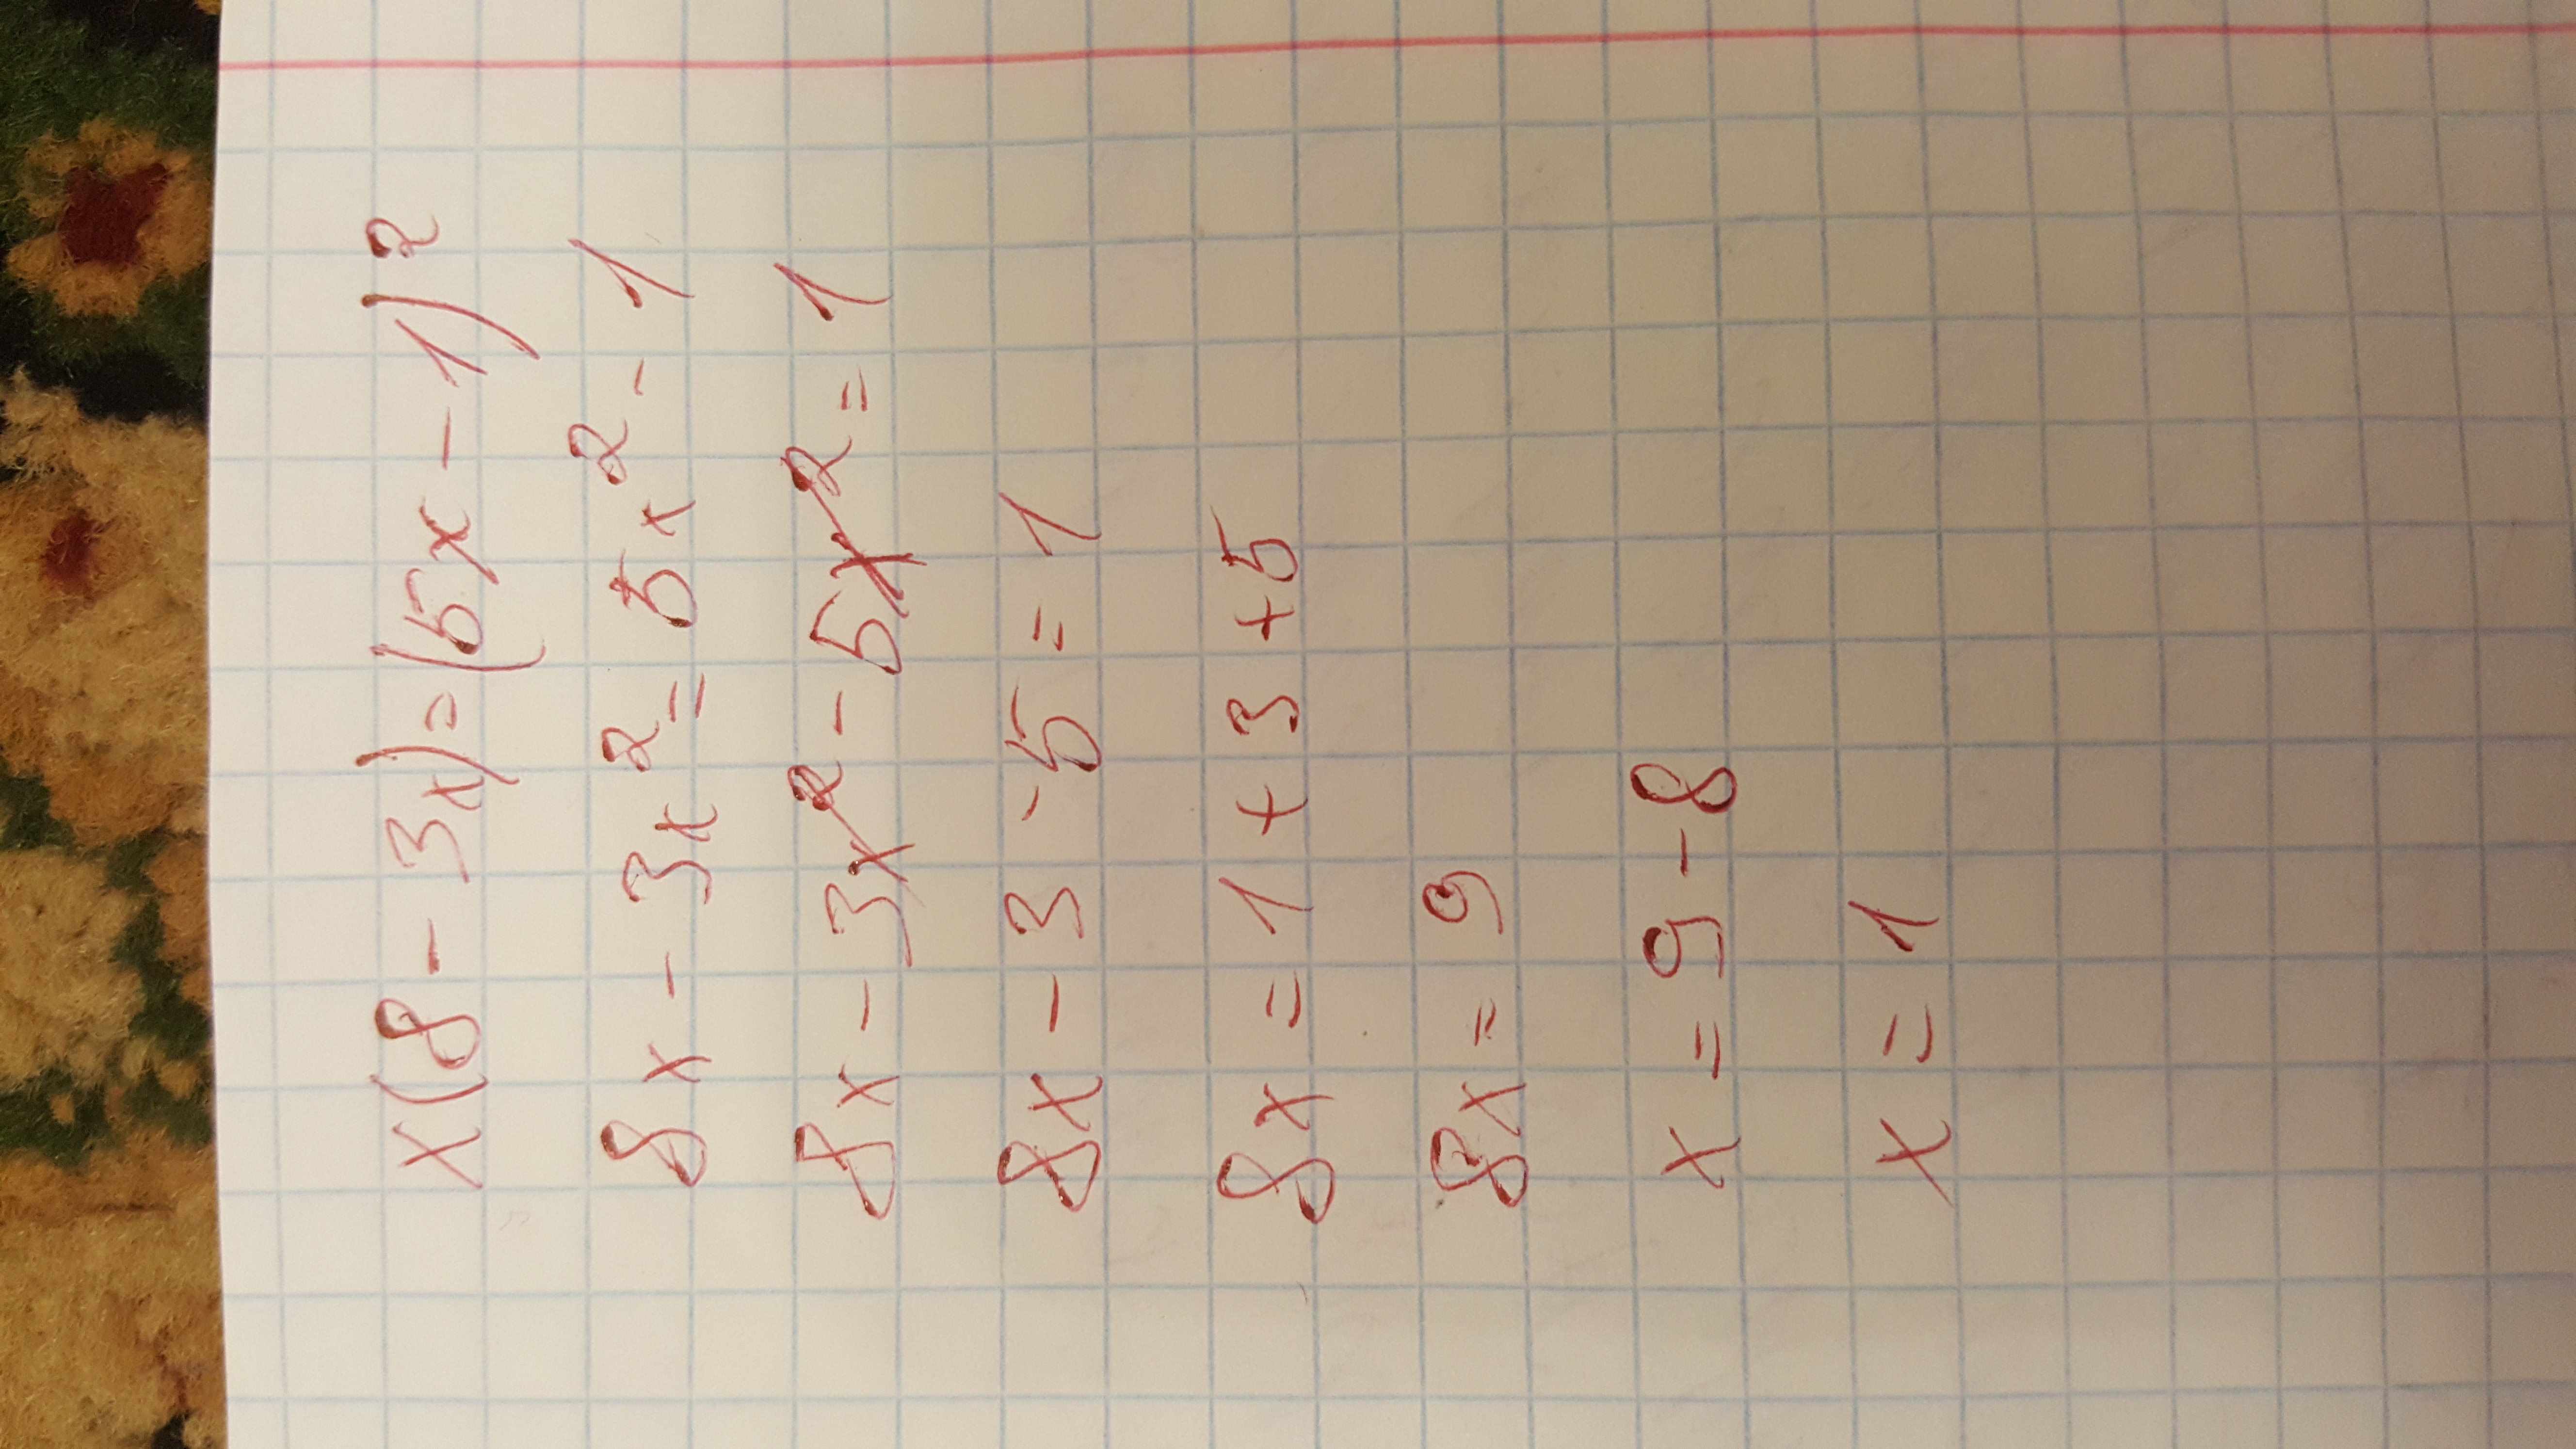 x(8 - 3x) = (5x - 1)²
8x - 3x² = 5x² - 1
8x - 3x² - 5x² = 1
8x - 3 - 5 = 1
8x = 1 + 3 + 5
8x = 9
x = 9 - 8
x = 1